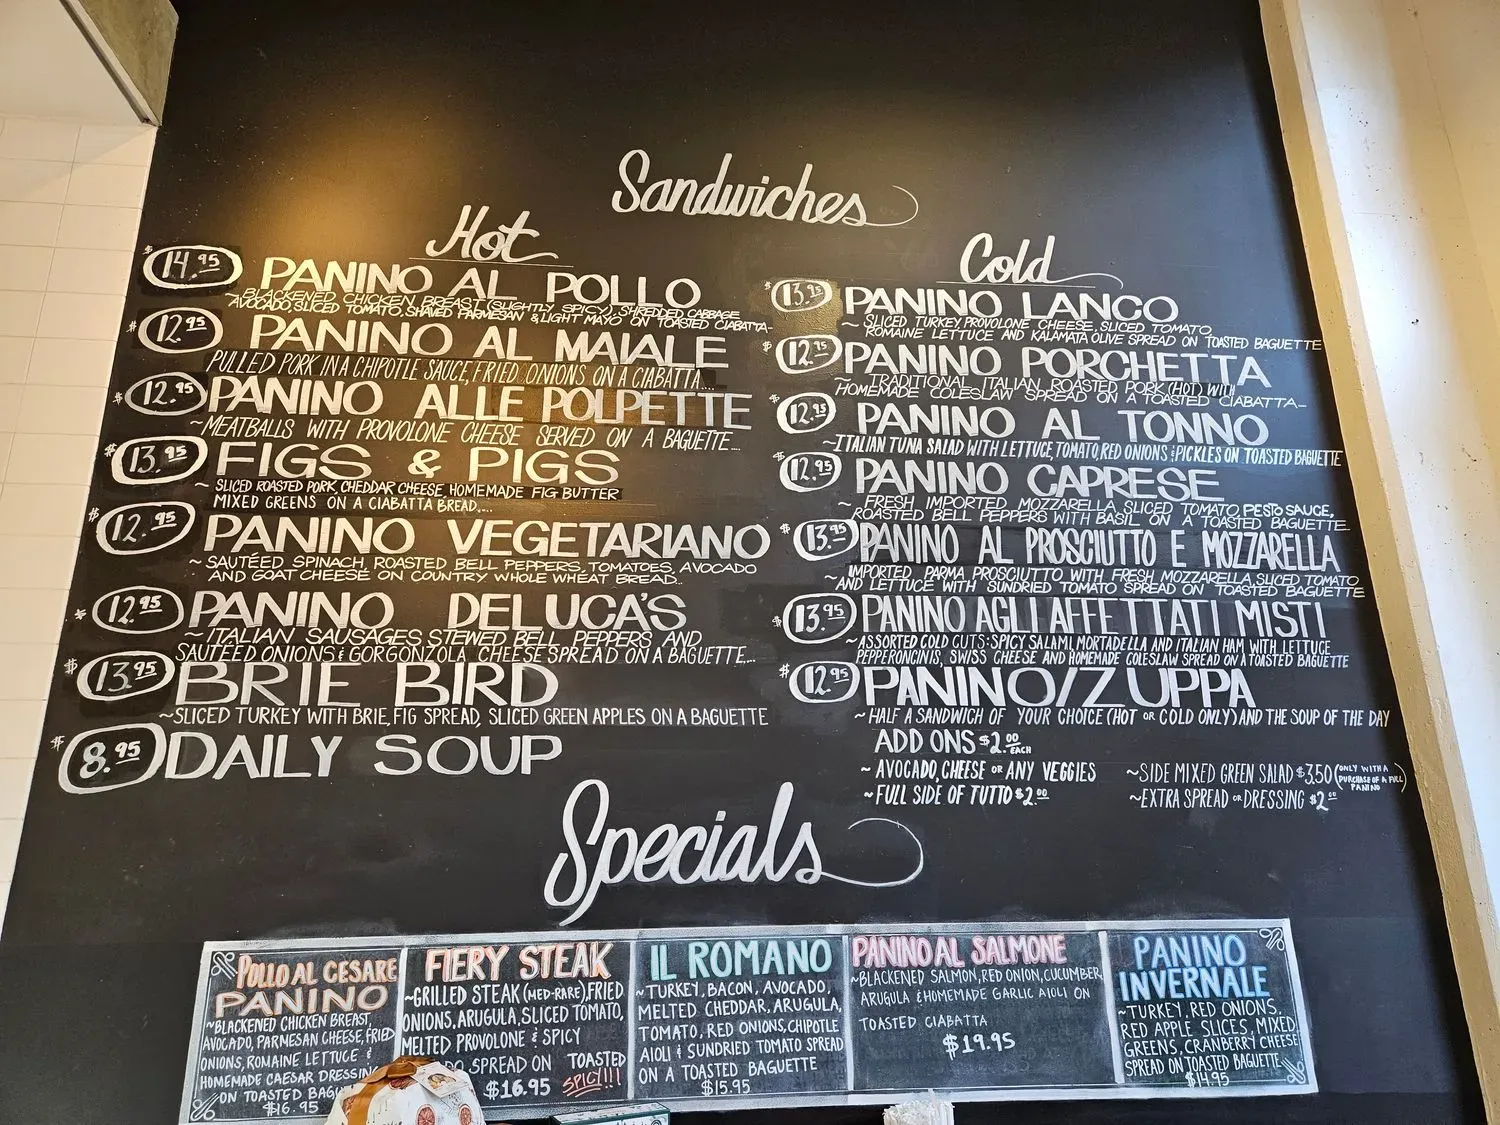 Sandwiches
Hot
$14.95 PANINO AL POLLO
~BLACKENED CHICKEN BREAST (SLIGHTLY SPICY), SHREDDED CABBAGE
AVOCADO, SLICED TOMATO, SHAVED PARMESAN & LIGHT MAYO ON TOASTED CIABATTA~
$12.95 PANINO AL MAIALE
PULLED PORK IN A CHIPOTLE SAUCE, FRIED ONIONS ON A CIABATTA....
$12.95 PANINO ALLE POLPETTE
~MEATBALLS WITH PROVOLONE CHEESE SERVED ON A BAGUETTE....
$13.95 FIGS & PIGS
~SLICED ROASTED PORK, CHEDDAR CHEESE, HOMEMADE FIG BUTTER
MIXED GREENS ON A CIABATTA BREAD....
$12.95 PANINO VEGETARIANO
~SAUTÉED SPINACH, ROASTED BELL PEPPERS, TOMATOES, AVOCADO
AND GOAT CHEESE ON COUNTRY WHOLE WHEAT BREAD...
$12.95 PANINO DELUCA'S
~ITALIAN SAUSAGES, STEWED BELL PEPPERS AND
SAUTÉED ONIONS & GORGONZOLA CHEESE SPREAD ON A BAGUETTE...
$13.95 BRIE BIRD
~SLICED TURKEY WITH BRIE, FIG SPREAD, SLICED GREEN APPLES ON A BAGUETTE
$8.95 DAILY SOUP
Cold
$13.95 PANINO LANCO
~SLICED TURKEY PROVOLONE CHEESE, SLICED TOMATO,
ROMAINE LETTUCE AND KALAMATA OLIVE SPREAD ON TOASTED BAGUETTE
$12.95 PANINO PORCHETTA
~TRADITIONAL ITALIAN ROASTED PORK (HOT) WITH
HOMEMADE COLESLAW SPREAD ON A TOASTED CIABATTA~
$12.95 PANINO AL TONNO
~ITALIAN TUNA SALAD WITH LETTUCE, TOMATO, RED ONIONS & PICKLES ON TOASTED BAGUETTE
$12.95 PANINO CAPRESE
~FRESH IMPORTED MOZZARELLA SLICED TOMATO, PESTO SAUCE,
ROASTED BELL PEPPERS WITH BASIL ON A TOASTED BAGUETTE
$13.95 PANINO AL PROSCIUTTO E MOZZARELLA
~IMPORTED PARMA PROSCIUTTO WITH FRESH MOZZARELLA SLICED TOMATO
AND LETTUCE WITH SUNDRIED TOMATO SPREAD ON TOASTED BAGUETTE
$13.95 PANINO AGLI AFFETTATI MISTI
~ASSORTED COLD CUTS: SPICY SALAMI, MORTADELLA AND ITALIAN HAM WITH LETTUCE
PEPPERONCINIS, SWISS CHEESE AND HOMEMADE COLESLAW SPREAD ON A TOASTED BAGUETTE
$12.95 PANINO/ZUPPA
~HALF A SANDWICH OF YOUR CHOICE (HOT OR COLD ONLY) AND THE SOUP OF THE DAY
ADD ONS $2.00 EACH
~AVOCADO, CHEESE OR ANY VEGGIES
~FULL SIDE OF TUTTO $2.00
~SIDE MIXED GREEN SALAD $3.50 (ONLY WITH A PURCHASE OF A FULL PANINO)
~EXTRA SPREAD OR DRESSING $2.00
Specials
POLLO AL CESARE
PANINO
~BLACKENED CHICKEN BREAST,
AVOCADO, PARMESAN CHEESE, FRIED
ONIONS, ROMAINE LETTUCE &
HOMEMADE CAESAR DRESSING
ON TOASTED BAG
$16.95
FIERY STEAK
~GRILLED STEAK (MED-RARE), FRIED
ONIONS, ARUGULA, SLICED TOMATO,
MELTED PROVOLONE & SPICY
SPREAD ON TOASTED
$16.95 SPICY!!!
IL ROMANO
~TURKEY, BACON, AVOCADO,
MELTED CHEDDAR, ARUGULA,
TOMATO, RED ONIONS, CHIPOTLE
AIOLI & SUNDRIED TOMATO SPREAD
ON A TOASTED BAGUETTE
$15.95
PANINO AL SALMONE
~BLACKENED SALMON, RED ONION, CUCUMBER,
ARUGULA & HOMEMADE GARLIC AIOLI ON
TOASTED CIABATTA
$19.95
PANINO
INVERNALE
~TURKEY, RED ONIONS,
RED APPLE SLICES, MIXED
GREENS, CRANBERRY CHEESE
SPREAD ON TOASTED BAGUETTE
$14.95